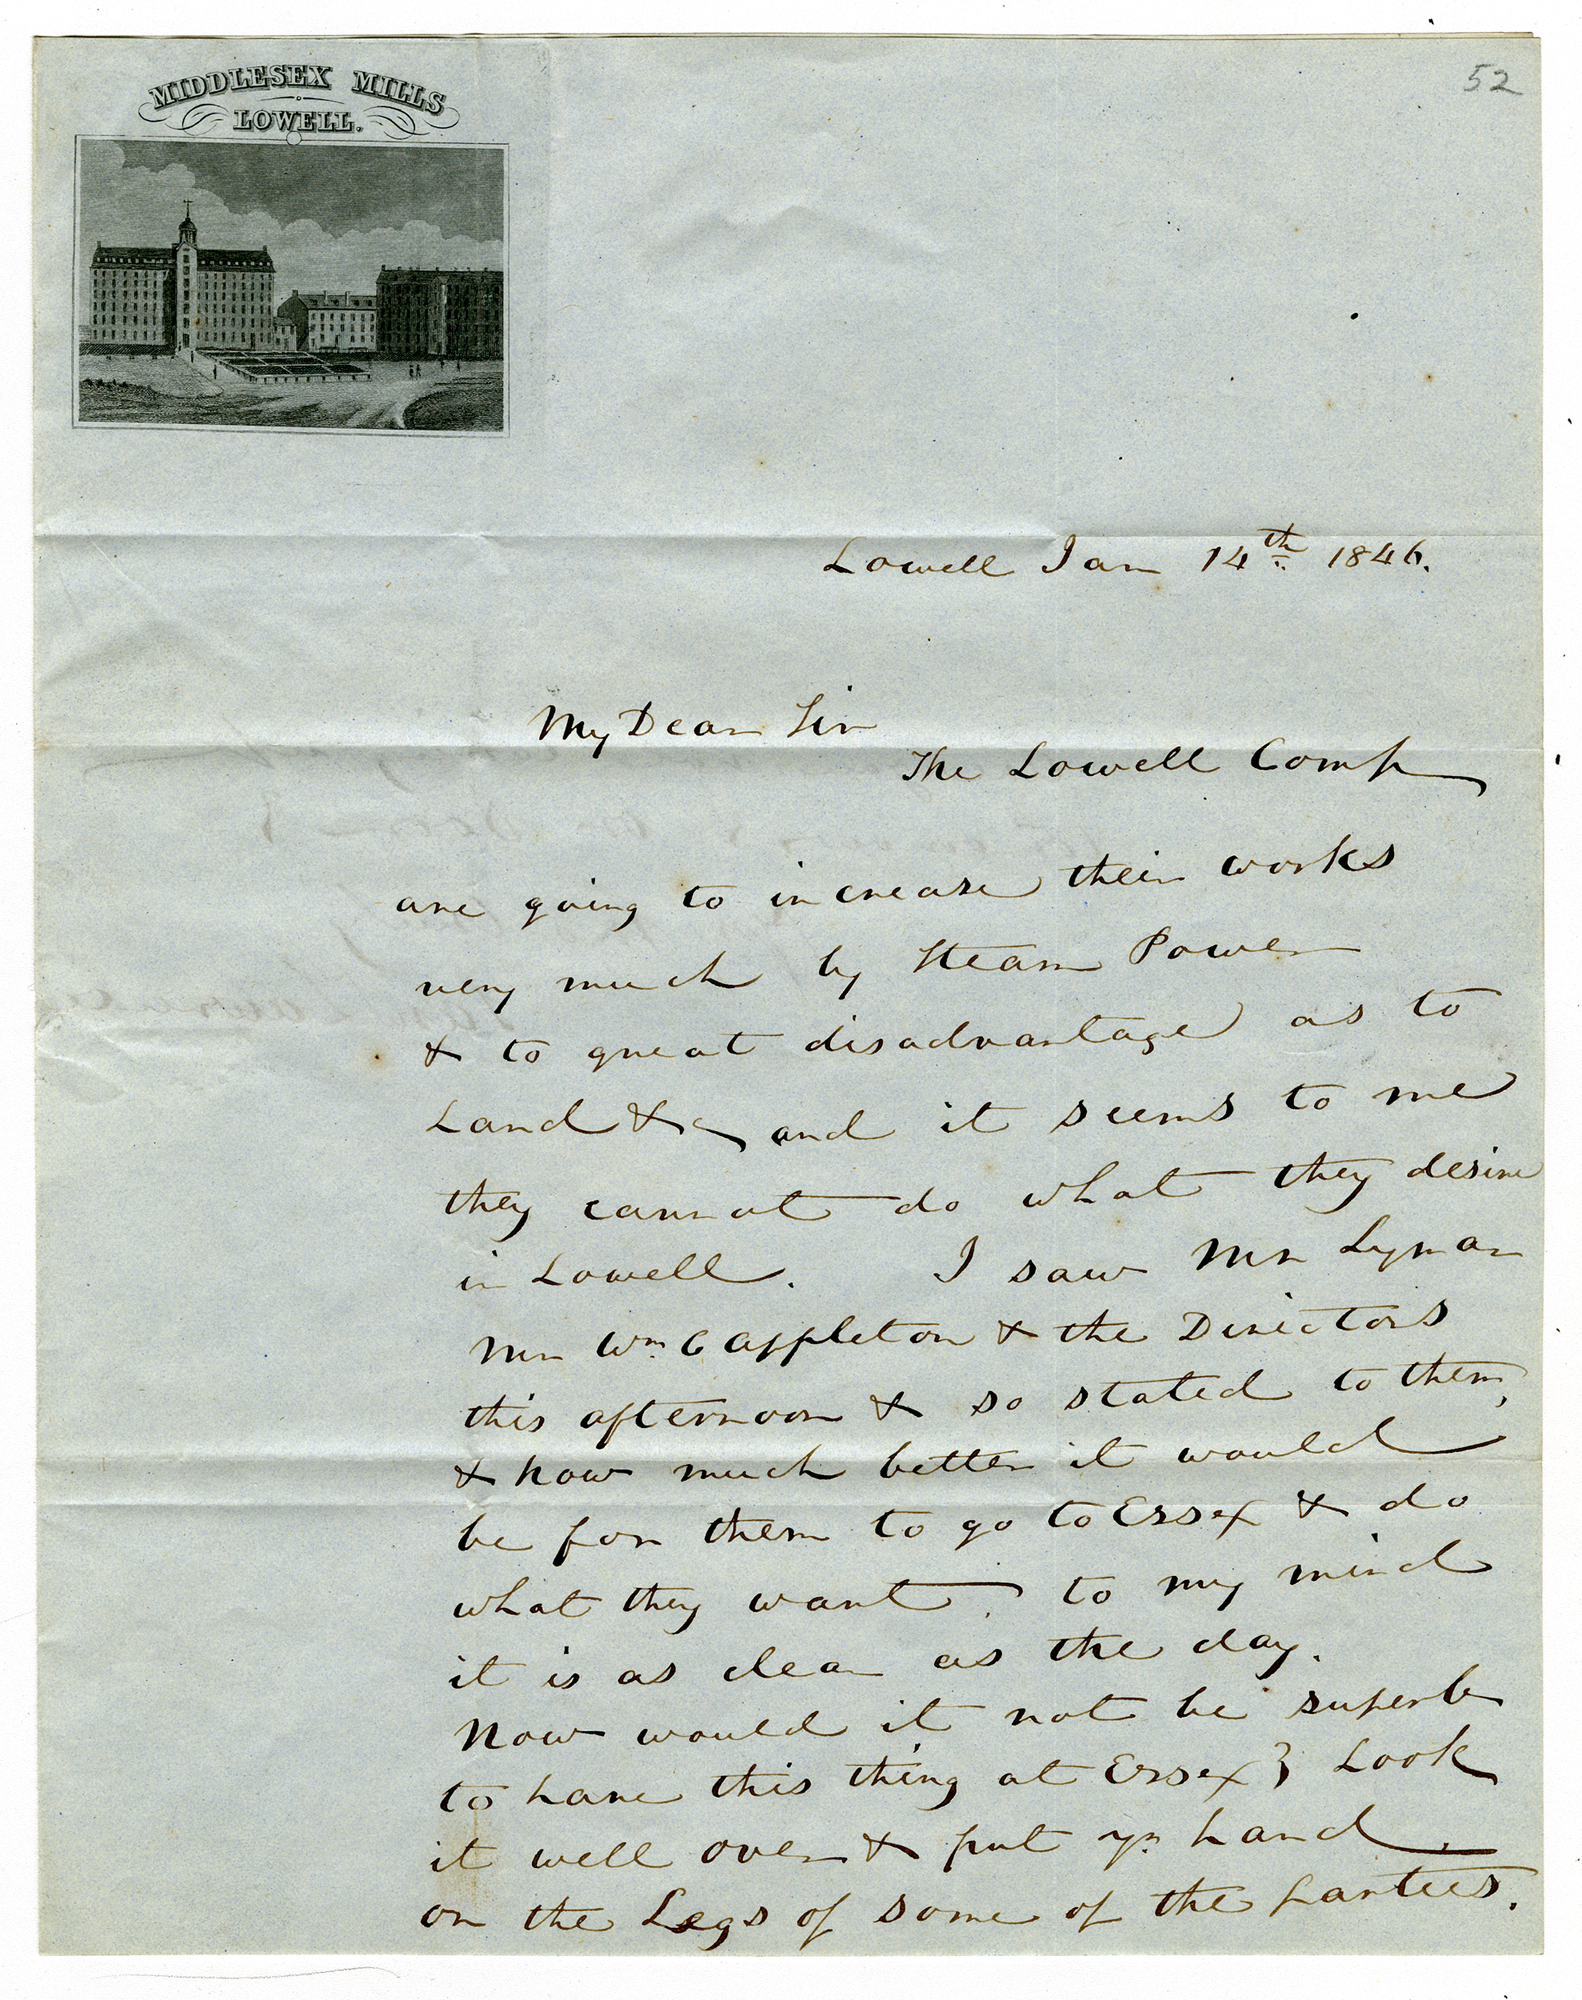 52
MIDDLESEX MILLS
LOWELL.
Lowell Jan 14th 1846.
My Dear Sir
The Lowell Comp
are going to increase their works
very much by Steam Power
& to great disadvantage as to
Land &c and it seems to me
they cannot do what they desire
in Lowell. I saw Mr Lyman
Mr Wm C Appleton & the Directors
this afternoon & so stated to them,
& how much better it would
be for them to go to Essex & do
what they want, to my mind
it is as clear as the day.
Now would it not be superb
to have this thing at Essex? Look
it well over & put yr hand
on the Legs of some of the parties.